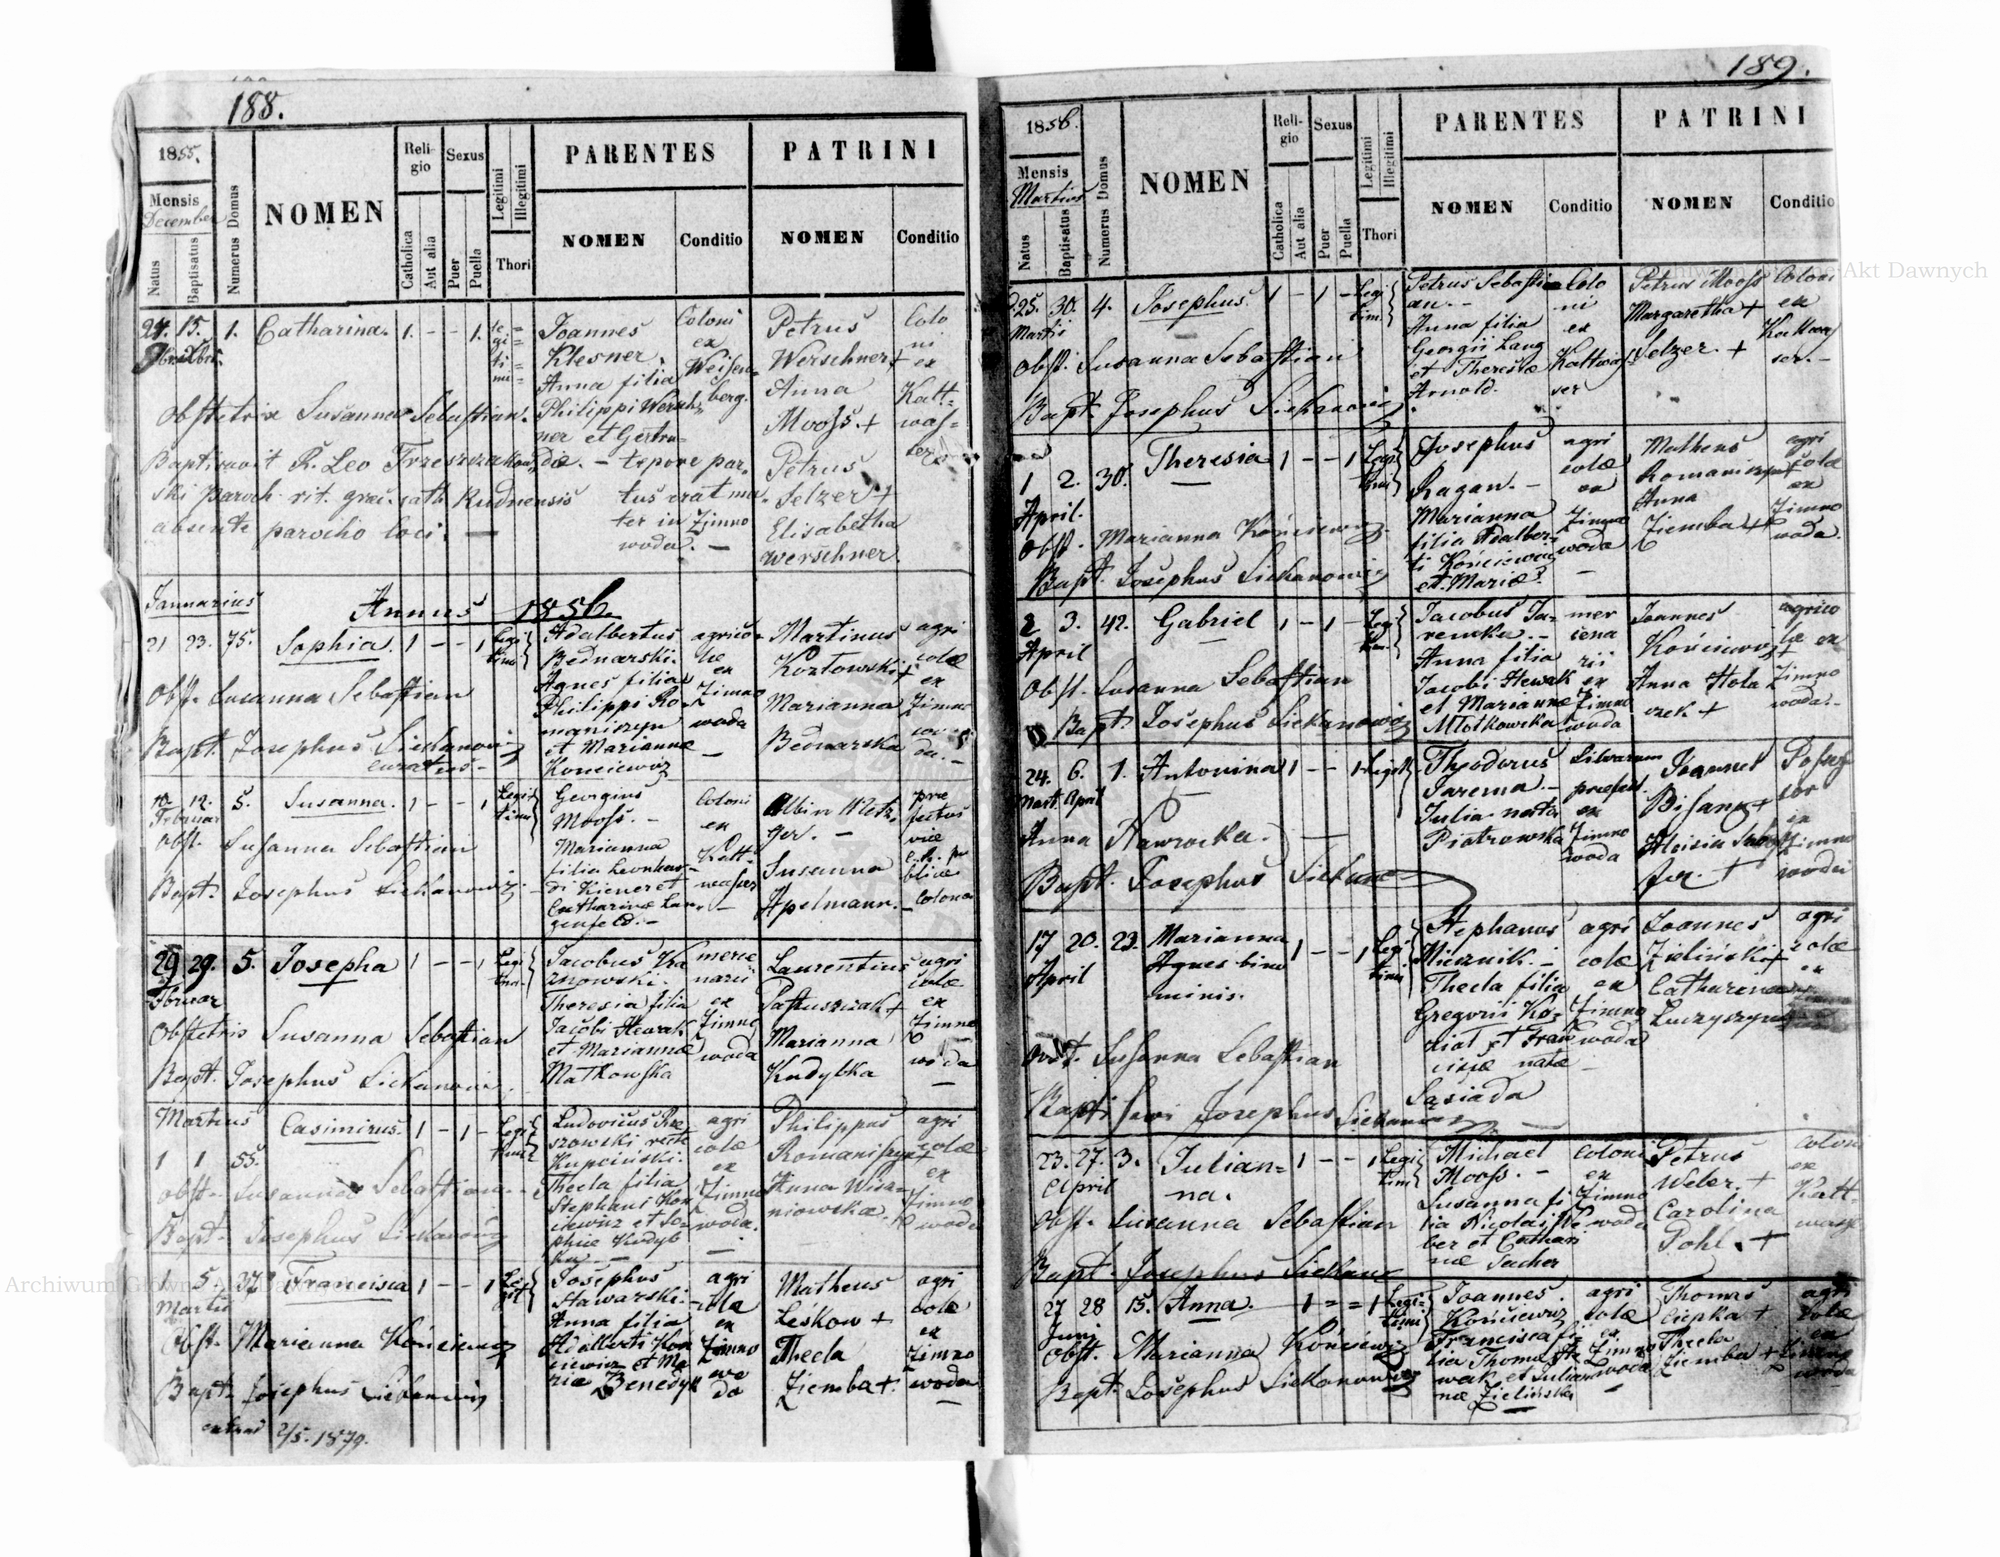 188.
1855.
Mensis
December
Natus
Baptisatus
Numerus Domus
NOMEN
Religio
Catholica
Aut alia
Sexus
Puer
Puella
Legitimi
Illegitimi
Thori
PARENTES
NOMEN
Conditio
PATRINI
NOMEN
Conditio
15. 1. Catharina. 1. - - 1.
Joannes
Klesner.
Anna filia
Philippi Wersch
ner et Gertru=
dæ. — tepore par.
tus erat ma
ter in Zimno
woda. —
Coloni
ex
Weisen=
berg.
Petrus
Werschner +
Anna
Mooss. +
Petrus
Selzer +
Elisabetha
Werschner.
Colo
ni
ex
Katt=
was=
ser
Obstetrix Susanna Sebastian.
Baptisavit R. Leo
ski Paroch. rit. græc. cath. Rudnensis
absente parocho loci. —
Januarius
Annus 1856.
21 23. 75. Sophia. 1 - - 1
Legi
timi
Adalbertus
Bednarski.
Agnes filia
Philippi Ro=
maniszyn
et Mariannæ
Konciewicz
agrico=
læ
ex
Zimno
woda
—
Martinus
Kozłowski +
Marianna
Bednarska
agri
colæ
ex
Zimno
wo=
da. —
Obst. Susanna Sebastian
Bapt. Josephus Siekanowicz
curatus —
10 12. 5. Susanna. 1 - - 1
Februar
Legit
timi
Georgius
Mooss. —
Marianna
filia Leonhar=
di Kiener et
Catharinæ Lan=
genfeld. —
Coloni
ex
Katt=
wasser
—
Albin Metz
ger. —
Susanna
Apelmann. —
præ
fectus
viæ
blicæ
Colona
Obst. Susanna Sebastian
Bapt. Josephus Siekanowicz.
29 29. 5. Josepha 1 - - 1
Februar
Jacobus
Theresia filia
Jacobi Hewak
et Mariannæ
Matkowska
merce
narii
ex
Zimno
woda
Laurentius
Marianna
Kudybka
agri
colæ
ex
Zimno
woda
—
Obstetrix Susanna Sebastian
Bapt. Josephus Siekanowicz.
Martius
Casimirus. 1 - 1 -
1 1 55.
Ludovicus
szowski recte
Kupciński.
Thecla filia
Stephani Kon
ciewicz et So=
phiæ Kudyb
ka —
agri
colæ
ex
Zimno
woda.
—
Philippus
Romaniszyn +
Anna Wisz=
niowska.
agri
colæ
ex
Zimno
woda
Obst. Susanna Sebastian.
Bapt. Josephus Siekanowicz
1 5 Francisca 1 - - 1
Martii
Josephus
Stawarski.
Anna filia
Adalberti Kon
ciewicz et Ma
riæ Benedyk
agri
colæ
ex
Zimno
wo
da
Matheus
Leskow +
Thecla
Ziemba +.
agri
colæ
ex
Zimno
woda
—
Obst. Marianna Końciewicz
Bapt. Josephus Siekanowicz
2/5. 1879.
189.
1856.
Mensis
Martius
Natus
Baptisatus
Numerus Domus
NOMEN
Religio
Catholica
Aut alia
Sexus
Puer
Puella
Legitimi
Illegitimi
Thori
PARENTES
NOMEN
Conditio
PATRINI
NOMEN
Conditio
25. 30. 4. Josephus. 1 - 1 -
Martii
Legi
tim.
Petrus Sebasti
an. —
Anna filia
Georgii Lang
et Theresiæ
Arnold.
Colo
ni
ex
Kaltwas
ser
Petrus Mooss
Margaretha +
Selzer. +
Coloni
ex
Kaltwas
ser. —
Obst. Susanna Sebastian
Bapt. Josephus Siekanowicz
1 2. 30. Theresia 1 - - 1
April.
Josephus
Ragan. —
Marianna
filia Adalber=
ti Kończiewicz
et Mariæ
agri
colæ
ex
Zimno
woda
—
Matheus
Romaniszyn
Anna
Ziemba +
agri
colæ
ex
Zimno
woda.
Obst. Marianna Kończiewicz.
Bapt. Josephus Siekanowicz
2 3. 42. Gabriel 1 - 1 -
April
Jacobus Ja=
remka. —
Anna filia
Jacobi Hewak
et Mariannæ
Młotkowska
mer
cena
rii
ex
Zimno
woda
Joannes
Końciewicz
Anna Hola
czek +
agrico
læ ex
Zimno
woda. —
Obst. Susanna Sebastian
Bapt. Josephus Siekanowicz
24. 6. 1. Antonina 1 - - 1
Mart. April
Theodorus
Jarema. —
Julia nata
Piotrowska
silvarum
præfect.
ex
Zimno
woda
Joannes
Bisanz +
Aloisia
fer. +
ex
Zimno
woda
Anna Nawrocka.
Bapt. Josephus Siekano
17 20. 23. Marianna 1 - - 1
April
Agnes bino
minis.
Stephanus
Miecznik. —
Thecla filia
Gregorii Ko=
ziat et Fran
ciscæ natæ
Sąsiada
agri
colæ
ex
Zimno
woda
—
Joannes
Zieliński +
Catharina
Łuczyszyn
agri
colæ
ex
Obst. Susanna Sebastian
Baptisavi Josephus Siekanowicz
23. 27. 3. Julian= 1 - - 1
April
na.
Legi
timi
Michael
Mooss. —
Susanna fi
lia Nicolai We
ber et Cathari
næ Sacher
Coloni
ex
Zimno
woda
Petrus
Weber. +
Carolina
Pohl. +
Coloni
ex
Katt=
wasser
Obst. Susanna Sebastian
Bapt. Josephus Siekano
27 28 15. Anna. 1 = = 1
Juni
Legi=
timi
Joannes.
Końciewicz
Francisca fi=
lia Thomæ He
wak et Julian
næ Zielińska
agri
colæ
ex
Zimno
woda
—
Thomas
Ciepka +
Thecla
Ziemba +
agri
colæ
ex
Zimno
woda
Obst. Marianna Końciewicz
Bapt. Josephus Siekanowicz
Archiwum Główne Akt Dawnych
Archiwum Główne Akt Dawnych